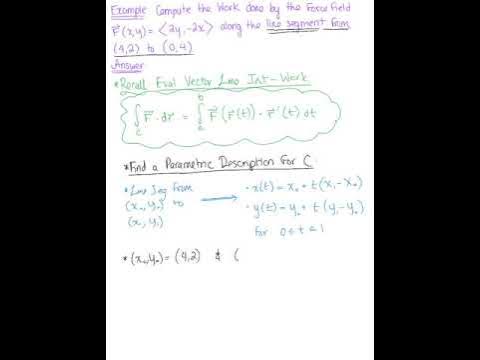 Example Compute the Work done by the Force Field
F⃗(x,y) = ⟨2y, -2x⟩ along the line segment from
(4,2) to (0,4).
Answer
*Recall Eval Vector Line Int - Work
∫_C F⃗ · dr⃗ = ∫_a^b F⃗(r⃗(t)) · r⃗'(t) dt
*Find a Parametric Description for C
*Line Seg from
(x₀, y₀) to
(x₁, y₁)
• x(t) = x₀ + t(x₁ - x₀)
• y(t) = y₀ + t(y₁ - y₀)
for 0 ≤ t ≤ 1
*(x₀, y₀) = (4,2) & (